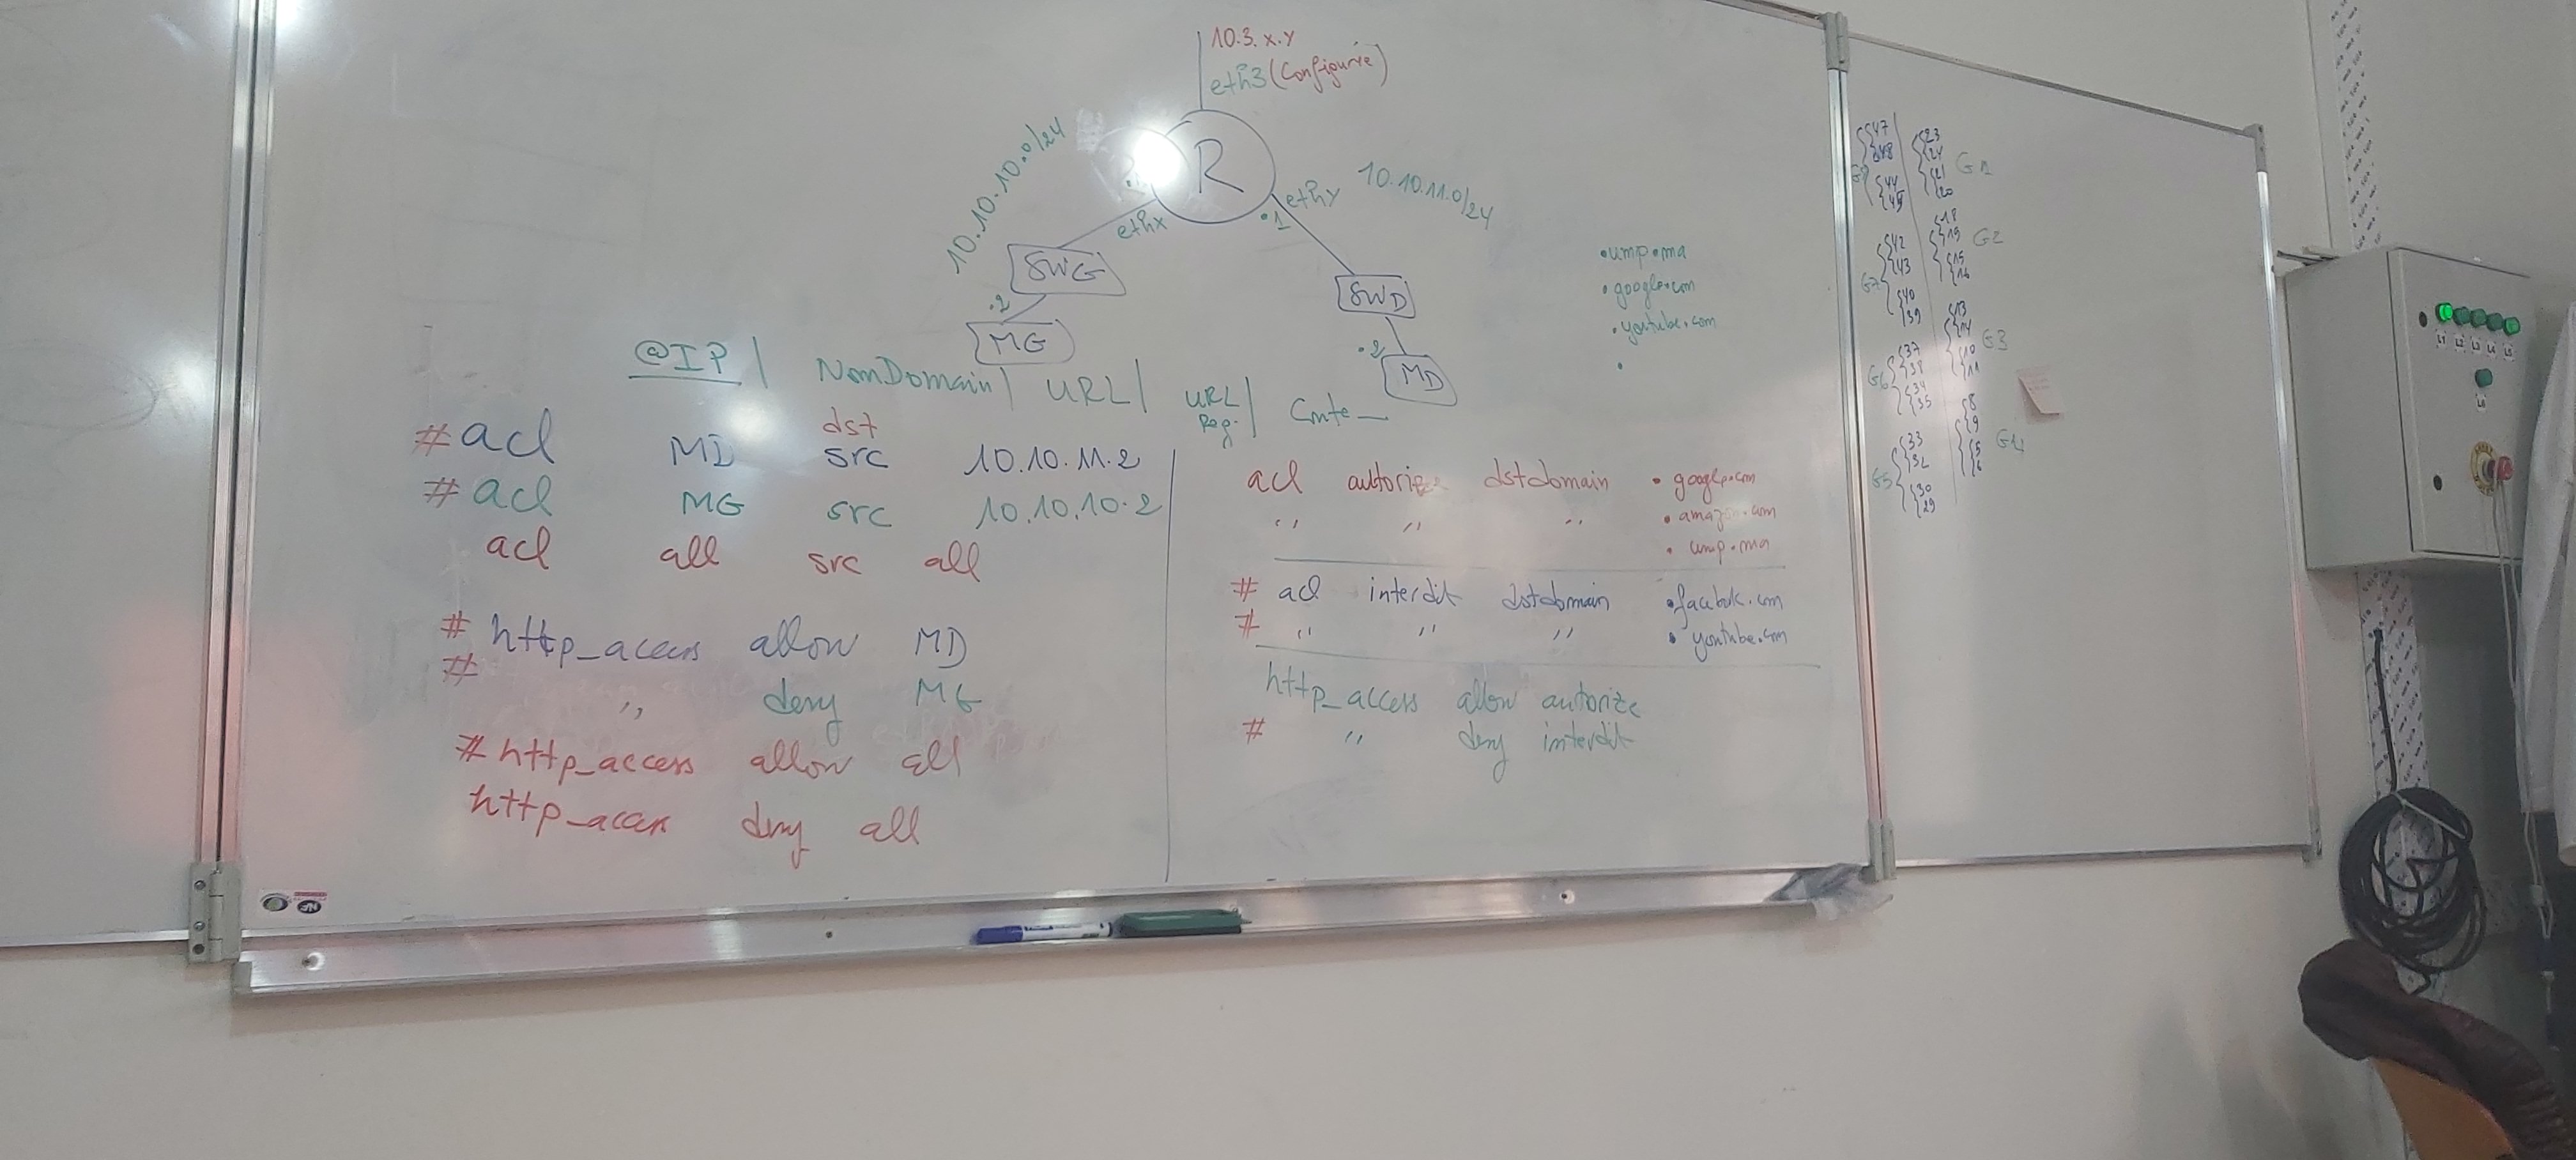 10.3.x.y
eth3 (Configurée)
R
10.10.10.0/24
ethx
.1 ethy
10.10.11.0/24
SWG
.2
MG
SWD
.2
MD
.ump.ma
.google.com
.youtube.com
.
@IP | NomDomain | URL | URL Reg. | Conte_
dst
# acl MD src 10.10.11.2
# acl MG src 10.10.10.2
acl all src all
# http_access allow MD
# ,, deny MG
# http_access allow all
http_access deny all
acl autorize dstdomain .google.com
,, ,, ,, .amazon.com
.ump.ma
# acl interdit dstdomain .facebook.com
# ,, ,, ,, .youtube.com
http_access allow autorize
# ,, deny interdit
47
48
44
45
G7 42
43
40
39
G6 37
38
34
35
G5 33
32
30
29
23
24
21
20
G1
18
19
15
16
G2
13
14
10
11
G3
8
9
5
6
G4
NF
L1 L2 L3 L4 L5
L6